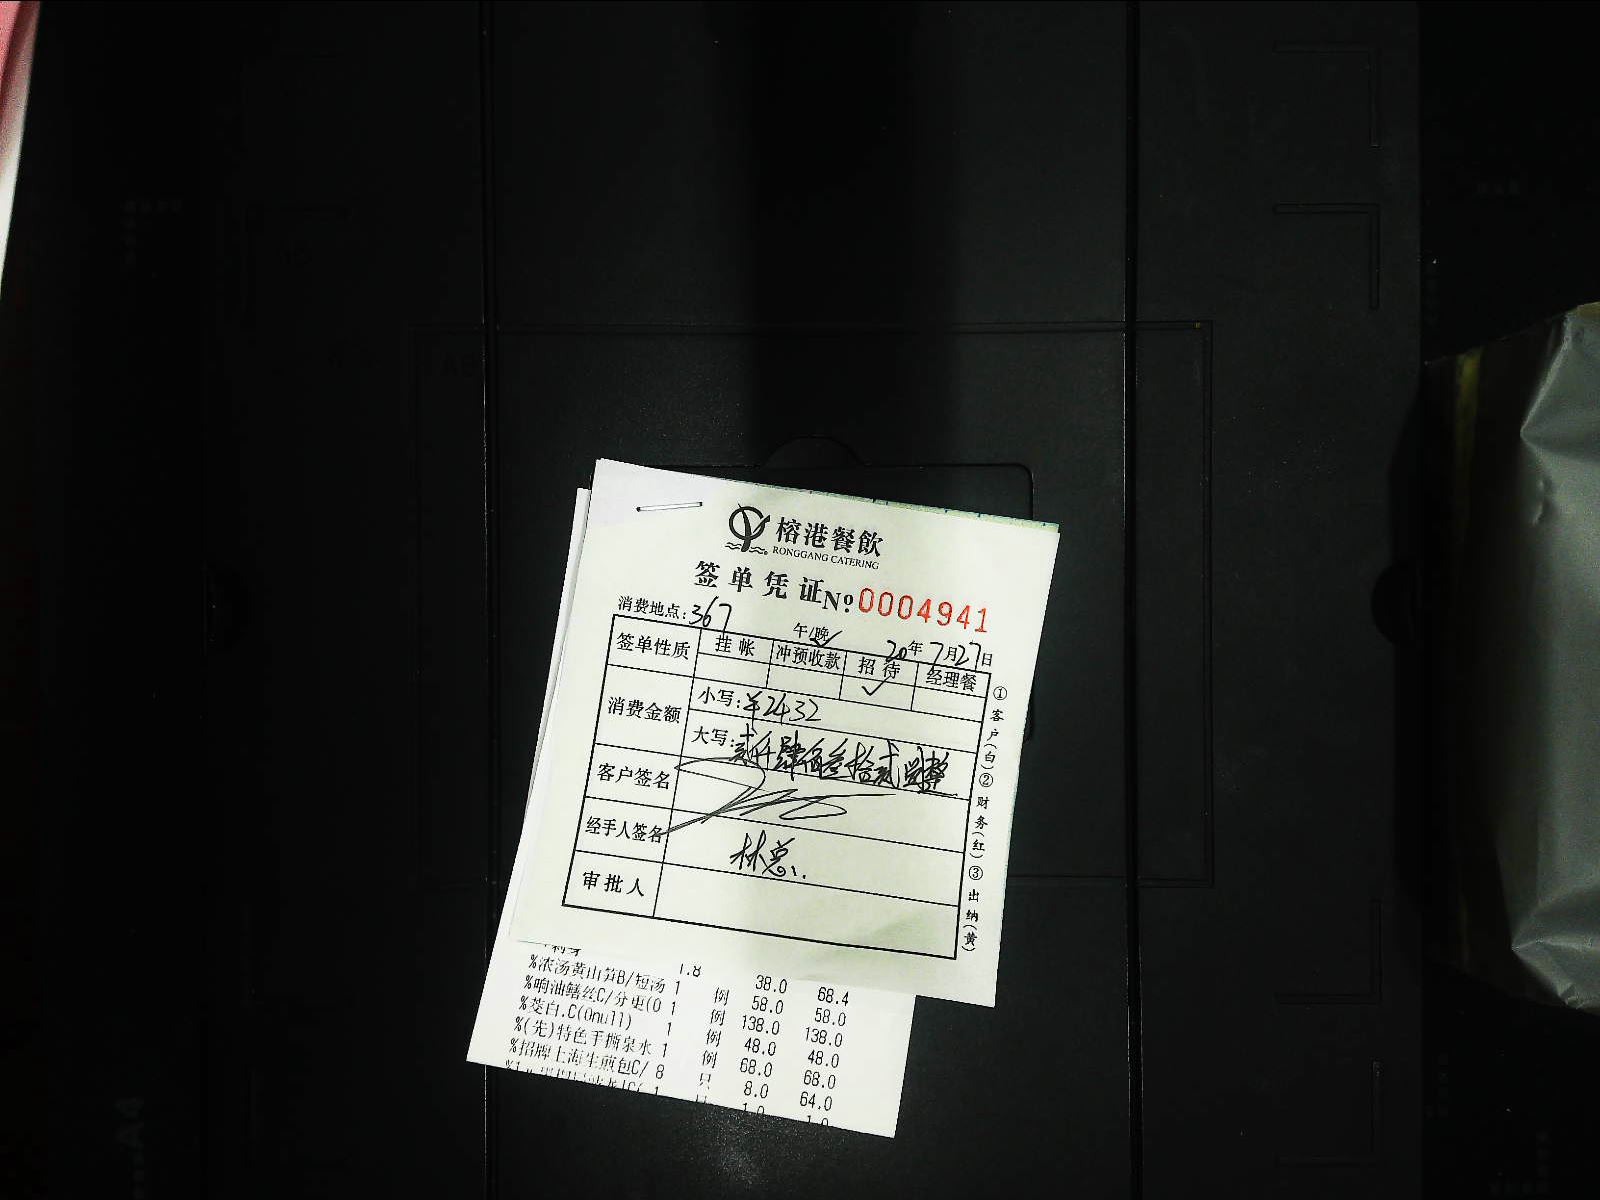 榕港餐飲
RONGGANG CATERING
签单凭证 Nº 0004941
消费地点: 367 午/晚 20年7月27日
签单性质 挂帐 冲预收款 招待 经理餐
✓
消费金额 小写: ¥2432
大写: 贰仟肆佰叁拾贰圆整
客户签名
经手人签名 林总
审批人
①客户(白)②财务(红)③出纳(黄)
1.8 38.0 68.4
%浓汤黄山笋B/短汤 1 例 58.0 58.0
%响油鳝丝C/分更(0 1 例 138.0 138.0
%茭白.C(0null) 1 例 48.0 48.0
%(先)特色手撕泉水 1 例 68.0 68.0
%招牌上海生煎包C/ 8 只 8.0 64.0
1 1.0 1.0